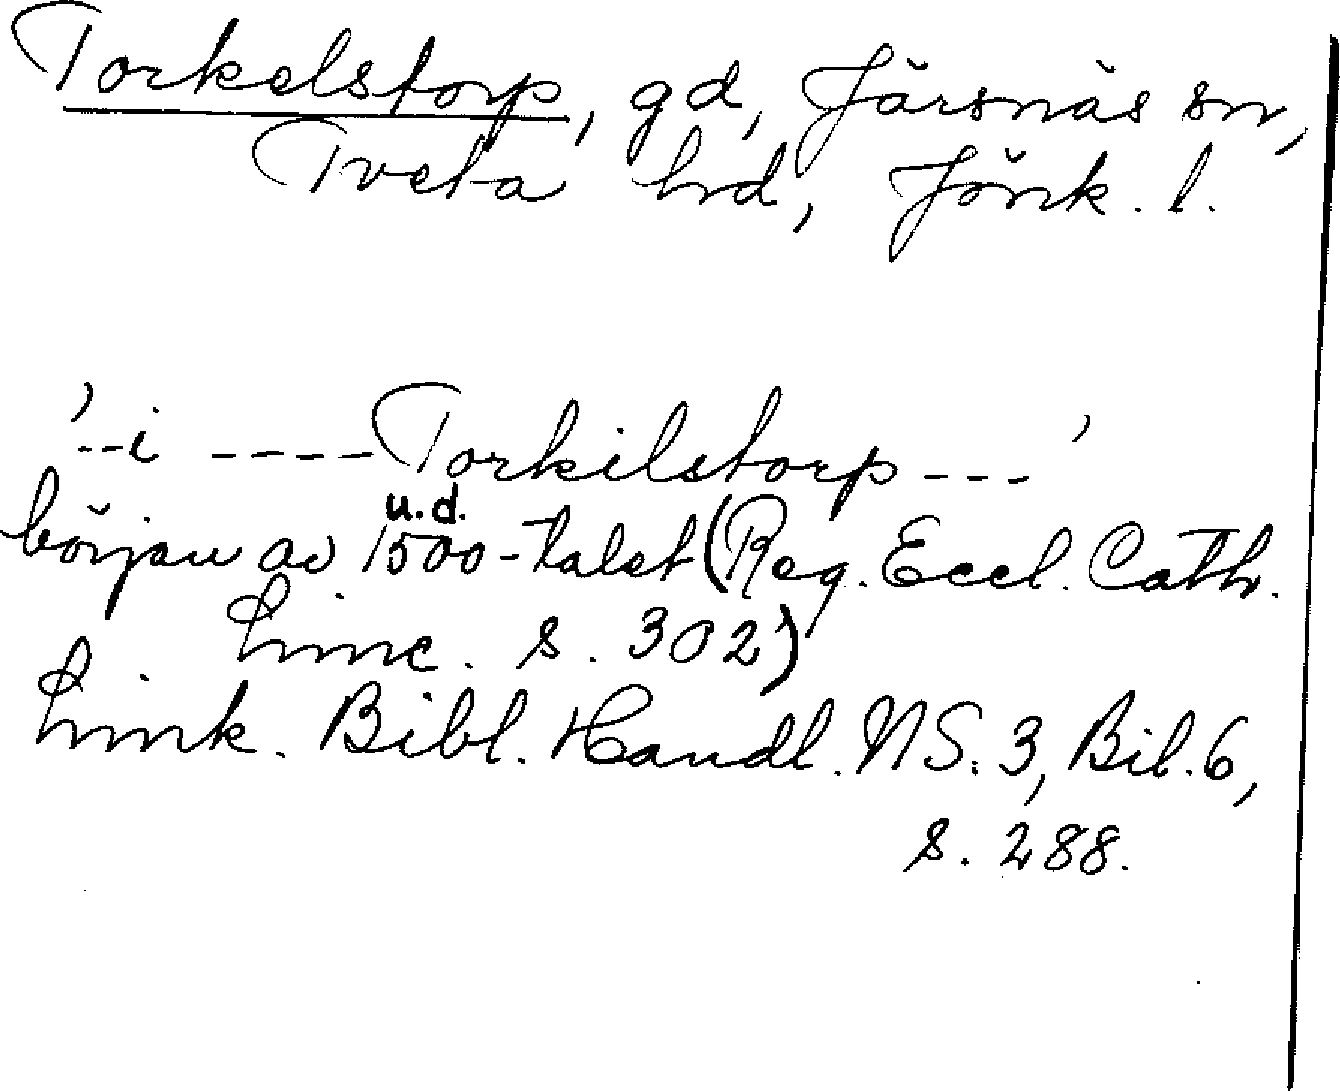 Torkelstorp, gd, Järsnäs sn,
Tveta hd, Jönk. l.
'--i ----Torkilstorp---'
u.d.
början av 1500-talet (Reg. Eccl. Cath.
Linc. s. 302)
Link. Bibl. Handl. NS. 3, Bil. 6,
s. 288.